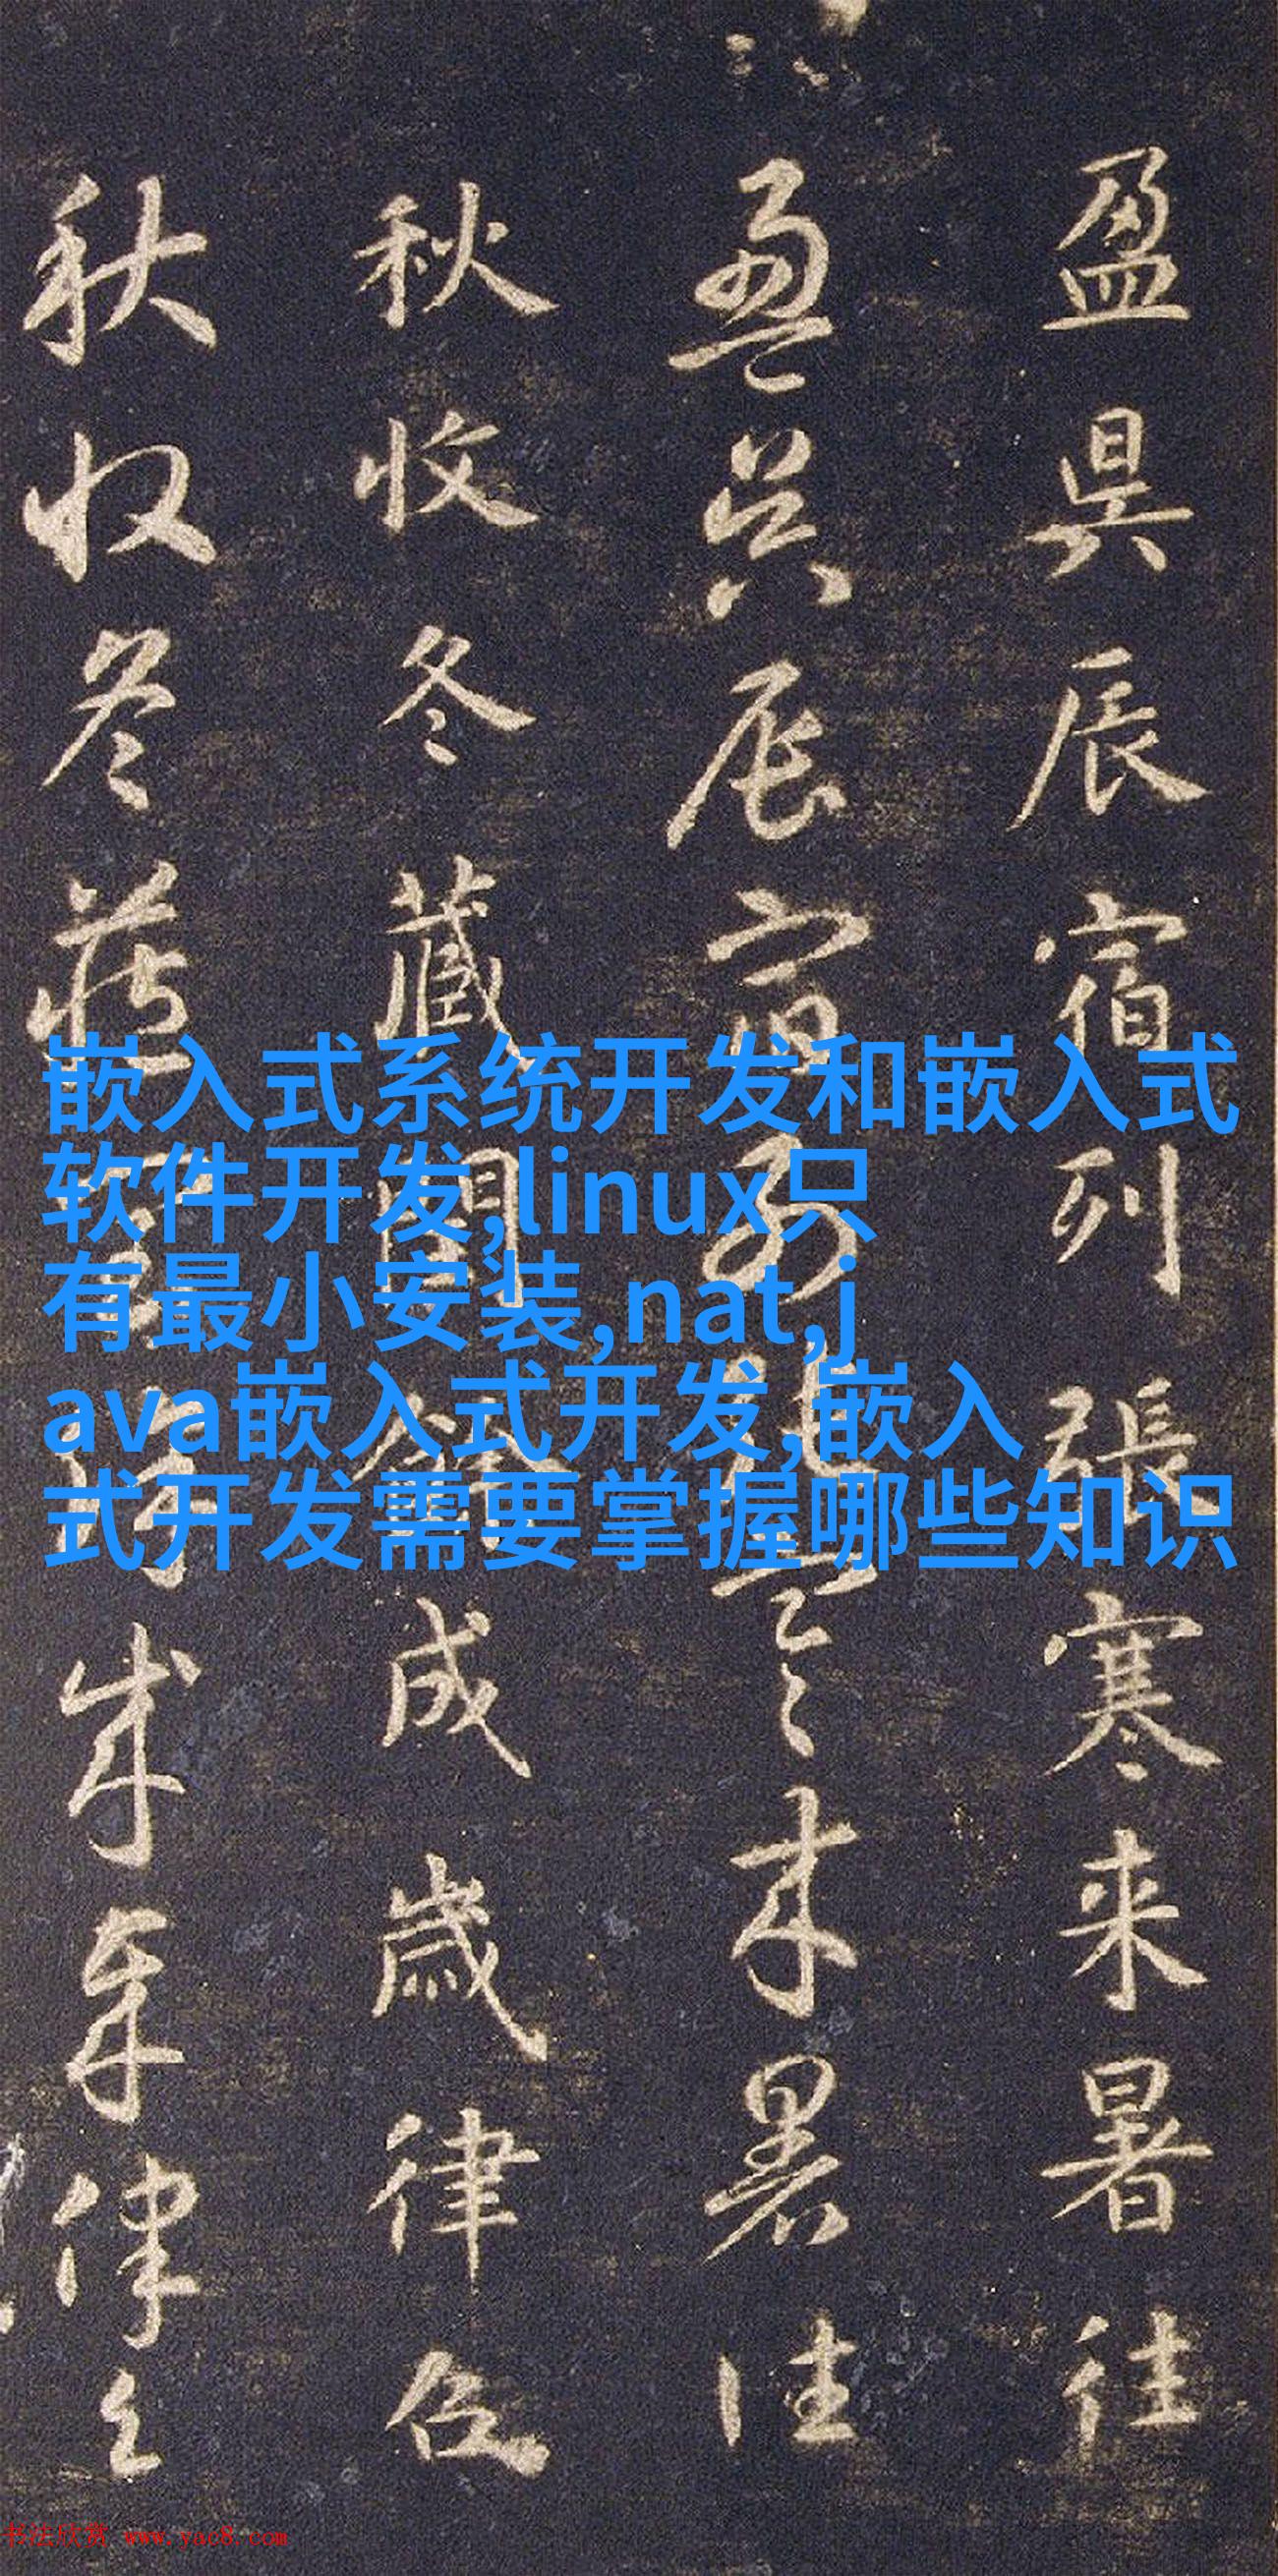 盈昃辰宿列張寒来暑往
盈昃辰宿列張寒来暑往
秋收冬藏閏餘成歲律召
秋收冬藏閏餘成歲律召
嵌入式系统开发和嵌入式
软件开发,linux只
有最小安装,nat,j
ava嵌入式开发,嵌入
式开发需要掌握哪些知识
书法欣赏 www.yac8.com